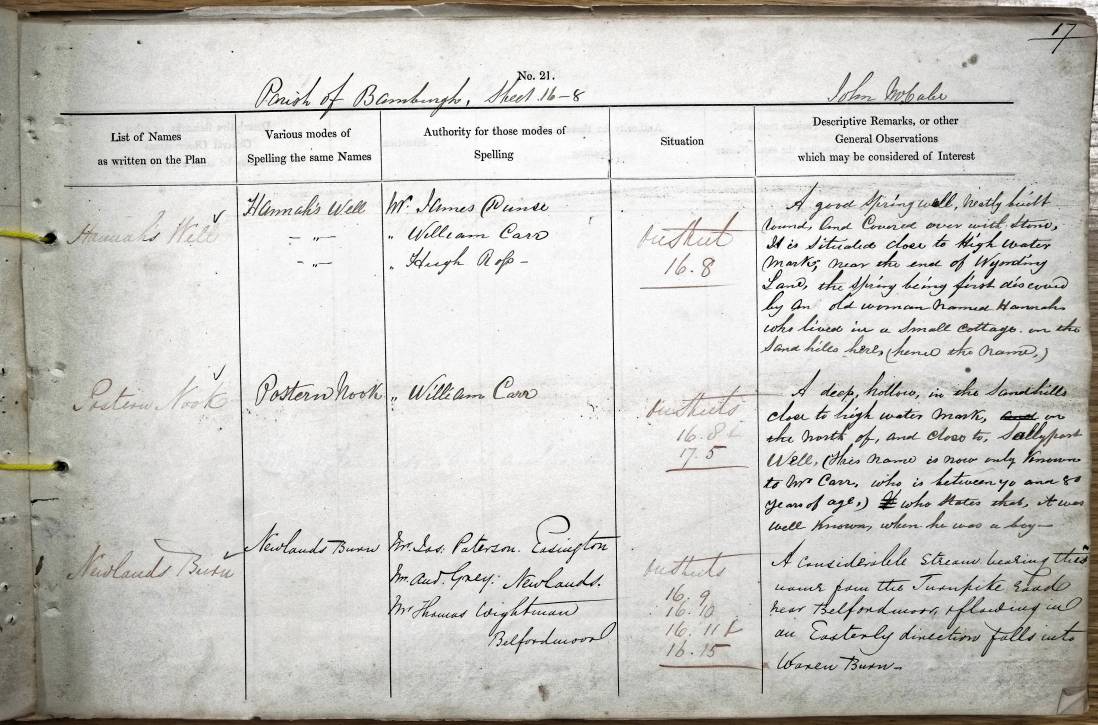 17
No. 21.
Parish of Bamburgh, Sheet 16-8
John McCabe
List of Names
as written on the Plan
Various modes of
Spelling the same Names
Authority for those modes of
Spelling
Situation
Descriptive Remarks, or other
General Observations
which may be considered of Interest
Hannah's Well
Hannah's Well
– „ –
– „ –
Mr. James Dunse
„ William Carr
„ Hugh Ross –
On Sheet
16.8
A good Spring well, neatly built
round, and Covered over with Stone,
It is Situated close to High water
Mark; near the end of Wynding
Lane, the Spring being first discovered
by an old woman Named Hannah
who lived in a Small Cottage on the
Sand hills here, (hence the Name,)
Postern Nook
Postern Nook
„ William Carr
On Sheets
16.8 &
17.5
A deep, hollow, in the Sandhills
close to high water Mark, and on
the North of, and close to, Sallyport
Well, (this name is now only Known
to Mr Carr, who is between 70 and 80
years of age,) who States that, it was
well Known, when he was a boy –
Newlands Burn
Newlands Burn
Mr. Jas: Paterson. Easington
Mr. And. Grey: Newlands.
Mr Thomas Wightman
Belfordmoor
On Sheets
16.9
16.10
16.11 &
16.15
A Considerable Stream bearing this
name from the Turnpike Road
near Belfordmoor, & flowing in
an Easterly direction falls into
Waren Burn.